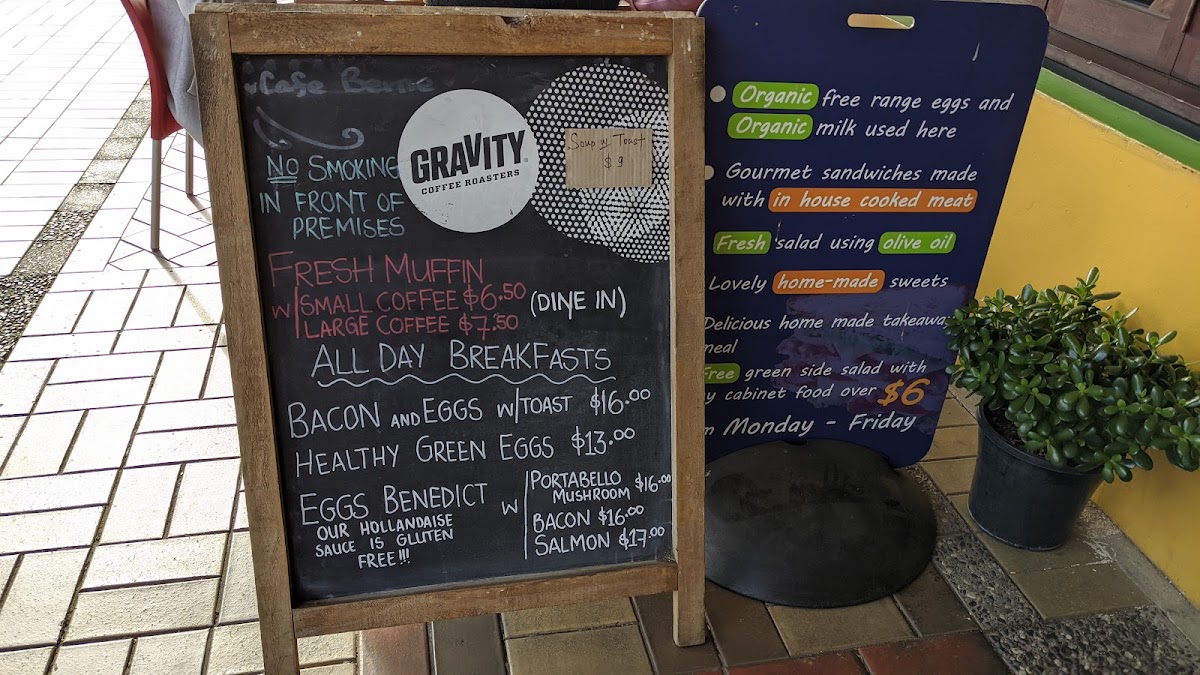 Cafe Berne
NO SMOKING
IN FRONT OF
PREMISES
GRAVITY
COFFEE ROASTERS
Soup w Toast
$9
FRESH MUFFIN
w/ SMALL COFFEE $6.50
LARGE COFFEE $7.50
(DINE IN)
ALL DAY BREAKFASTS
BACON AND EGGS w/TOAST $16.00
HEALTHY GREEN EGGS $13.00
EGGS BENEDICT w
OUR HOLLANDAISE
SAUCE IS GLUTEN
FREE!!!
PORTABELLO
MUSHROOM $16.00
BACON $16.00
SALMON $17.00
Organic free range eggs and
Organic milk used here
Gourmet sandwiches made
with in house cooked meat
Fresh salad using olive oil
Lovely home-made sweets
Delicious home made takeaway
meal
Free green side salad with
cabinet food over $6
Monday - Friday